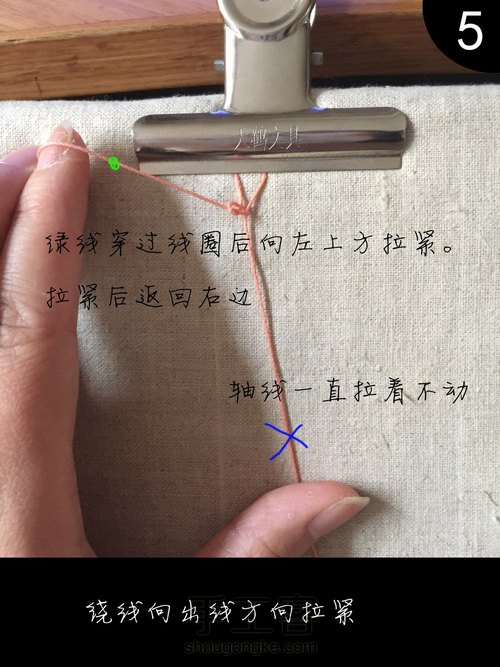 5
天鹅文具
绿线穿过线圈后向左上方拉紧。
拉紧后返回右边
轴线一直拉看不动
绕线向出线方向拉紧
shougongke.com